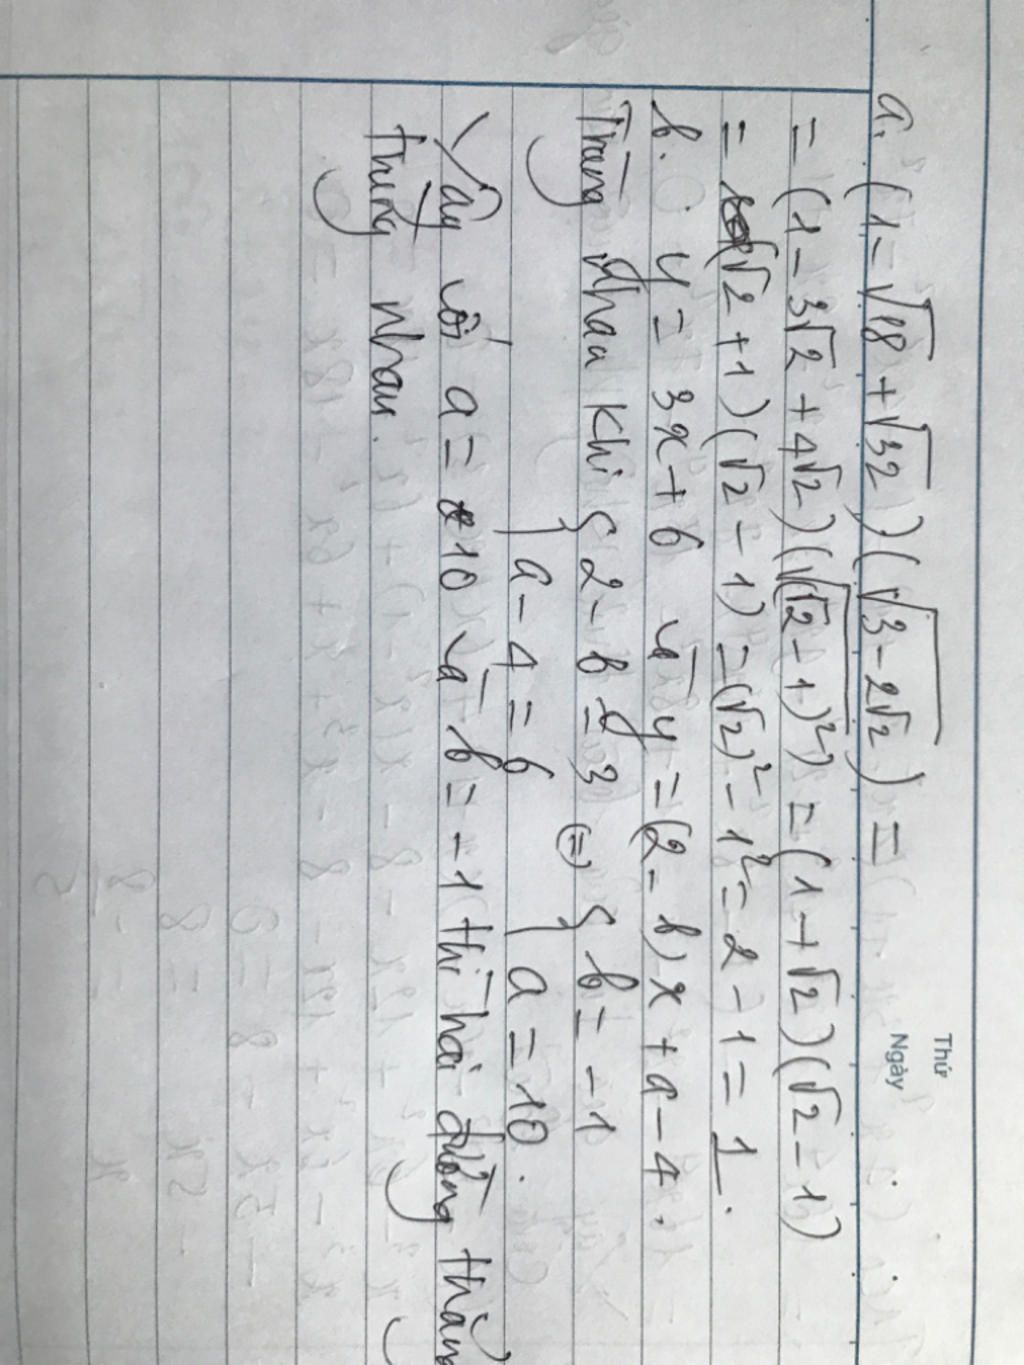 Thứ
Ngày
a. (1-√18+√32)(√3-2√2) =
= (1-3√2+4√2)(√(√2-1)²) = (1+√2)(√2-1)
= (√2+1)(√2-1) = (√2)²-1² = 2-1 = 1.
b. y = 3x+6 và y = (2-b)x+a-4.
Trùng nhau khi { 2-b=3 (=) { b = -1
a-4=6 a = 10.
Vậy với a = 10 và b = -1 thì hai đường thẳng
trùng nhau.